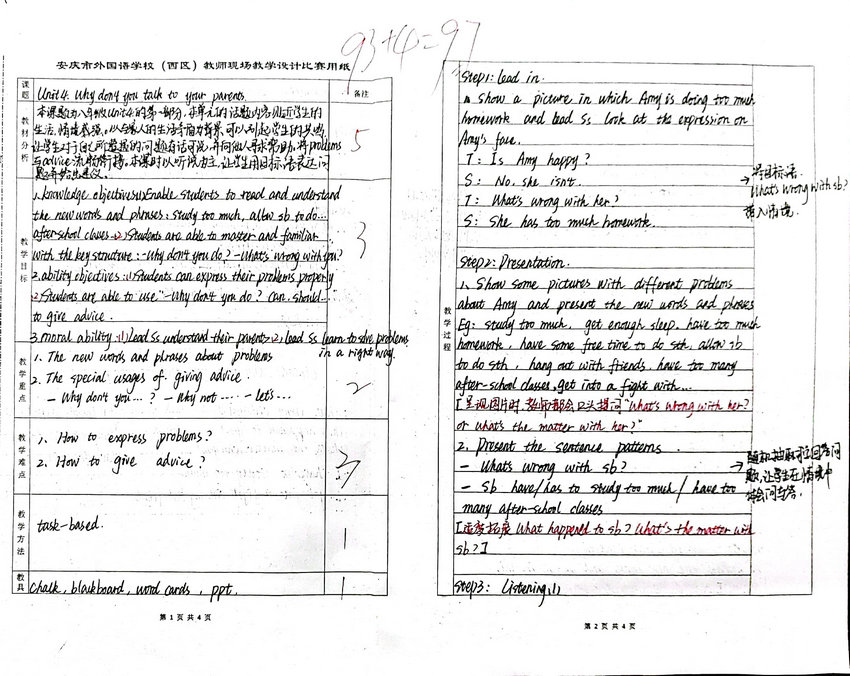 93+4=97
安庆市外国语学校（西区）教师现场教学设计比赛用纸
课题
Unit 4. Why don't you talk to your parents.
备注
教材分析
本课题为八年级Unit 4的第一部分，本单元的话题内容贴近学生的
生活，情境
让学生对于自己所 的问题有话可说，并向他人寻求帮助，将problems
与advice 衔接。本课时以听说为主，让学生用目标语表达问
题并给出建议。
5
教学目标
1. knowledge objectives: (1) Enable students to read and understand
the new words and phrases: study too much, allow sb to do...
after-school classes (2) Students are able to master and familiar
with the key structure: -Why don't you do? -What's wrong with you?
2. ability objectives: (1) Students can express their problems properly
(2) Students are able to use "-Why don't you do? can. should..."
to give advice.
3. moral ability: (1) Lead Ss understand their parents (2) lead Ss learn to solve problems
in a right way.
3
教学重点
1. The new words and phrases about problems
2. The special usages of giving advice.
- Why don't you...? - Why not .... - let's...
2
教学难点
1. How to express problems?
2. How to give advice?
3
教学方法
task-based.
1
教具
chalk, blackboard, word cards, ppt.
1
第 1 页 共 4 页
教学过程
Step1: lead in.
1. Show a picture in which Amy is doing too much
homework and lead Ss look at the expression on
Amy's face.
T: Is Amy happy?
S: No, she isn't.
T: What's wrong with her?
S: She has too much homework.
→ 目标语
What's wrong with sb?
入情境.
Step2: Presentation.
1. Show some pictures with different problems
about Amy and present the new words and phrases
Eg: study too much, get enough sleep, have too much
homework, have some free time to do sth, allow sb
to do sth, hang out with friends, have too many
after-school classes, get into a fight with...
[呈现图片时，教师都会口头提问 "What's wrong with her?
or What's the matter with her?"
2. Present the sentence patterns.
- What's wrong with sb?
- Sb have/has to study too much / have too
many after-school classes
→ 随机抽取 回答问
题，让学生在情境中
体会问与答.
[ 拓展 What happened to sb? What's the matter with
sb?]
Step3: Listening. (1)
第 2 页 共 4 页